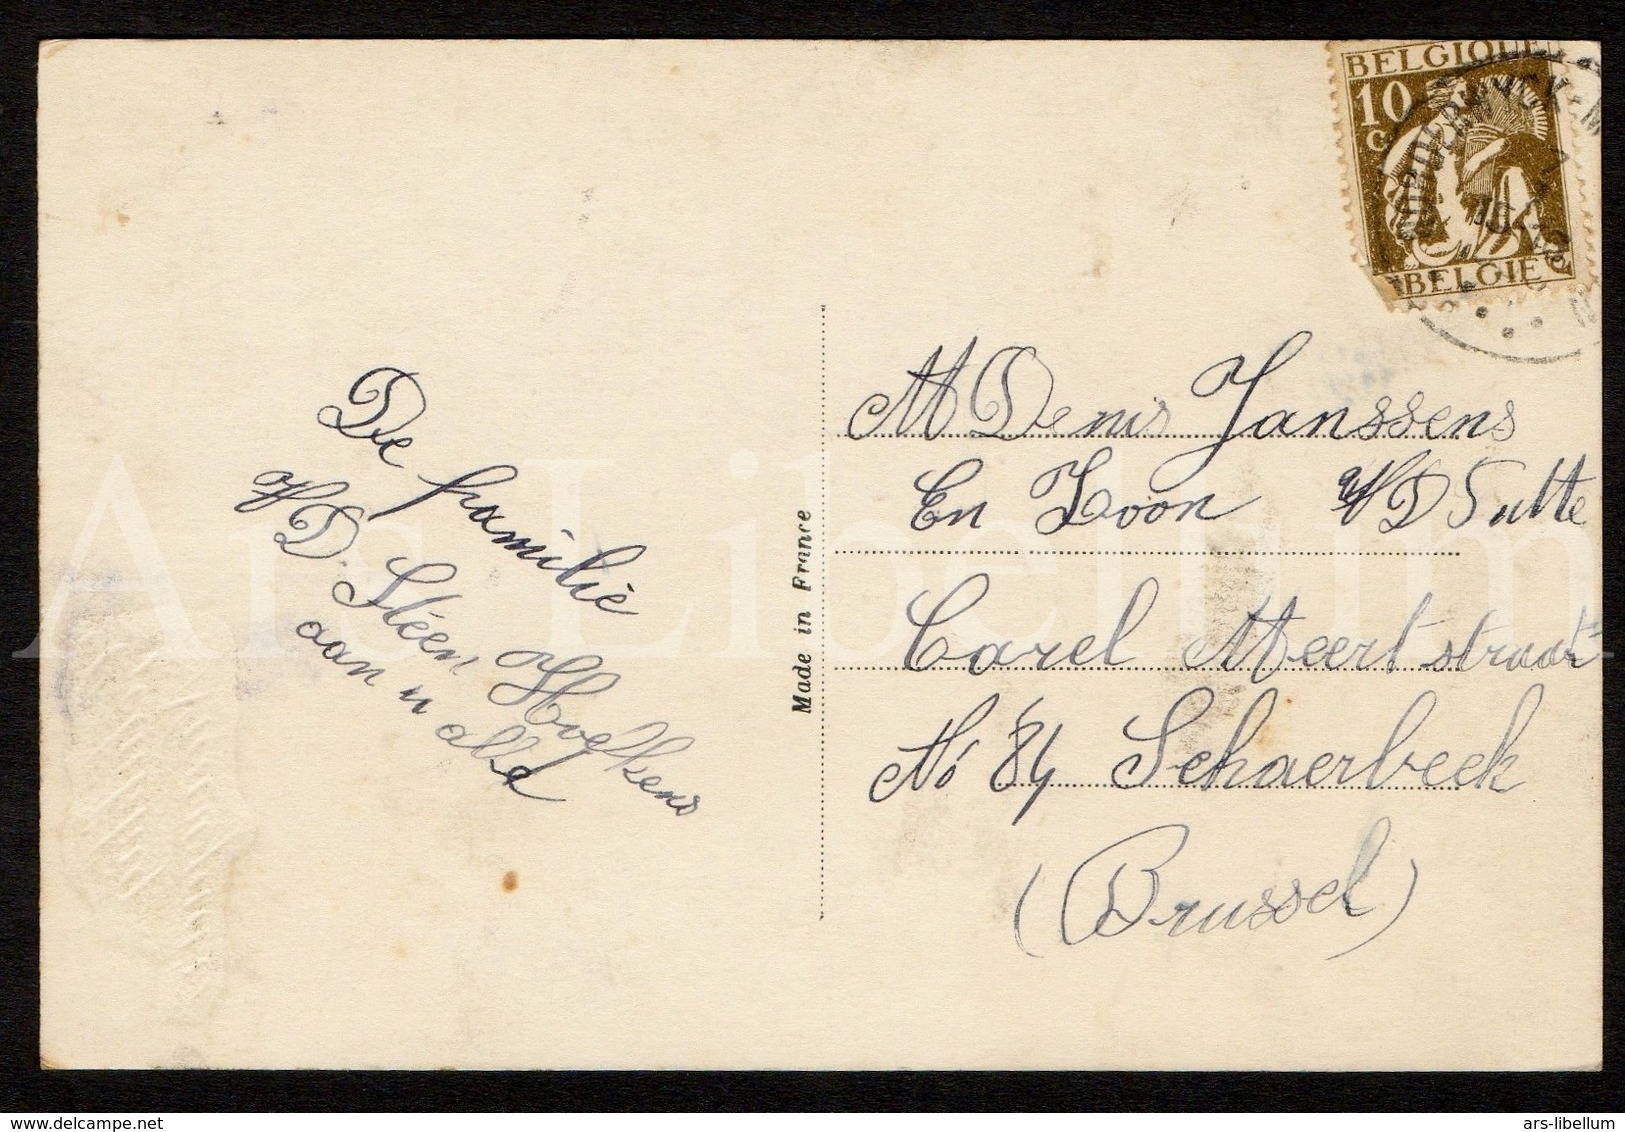 BELGIQUE
10
c
BELGIE
De familie
VD. Stéen Hoefkens
aan u alle
Made in France
M Denis Janssens
En Zoon VD Putte
Carel Meert straat
No 84 Schaerbeek
(Brussel)
Ars Libellum
ars-libellum.delcampe.net